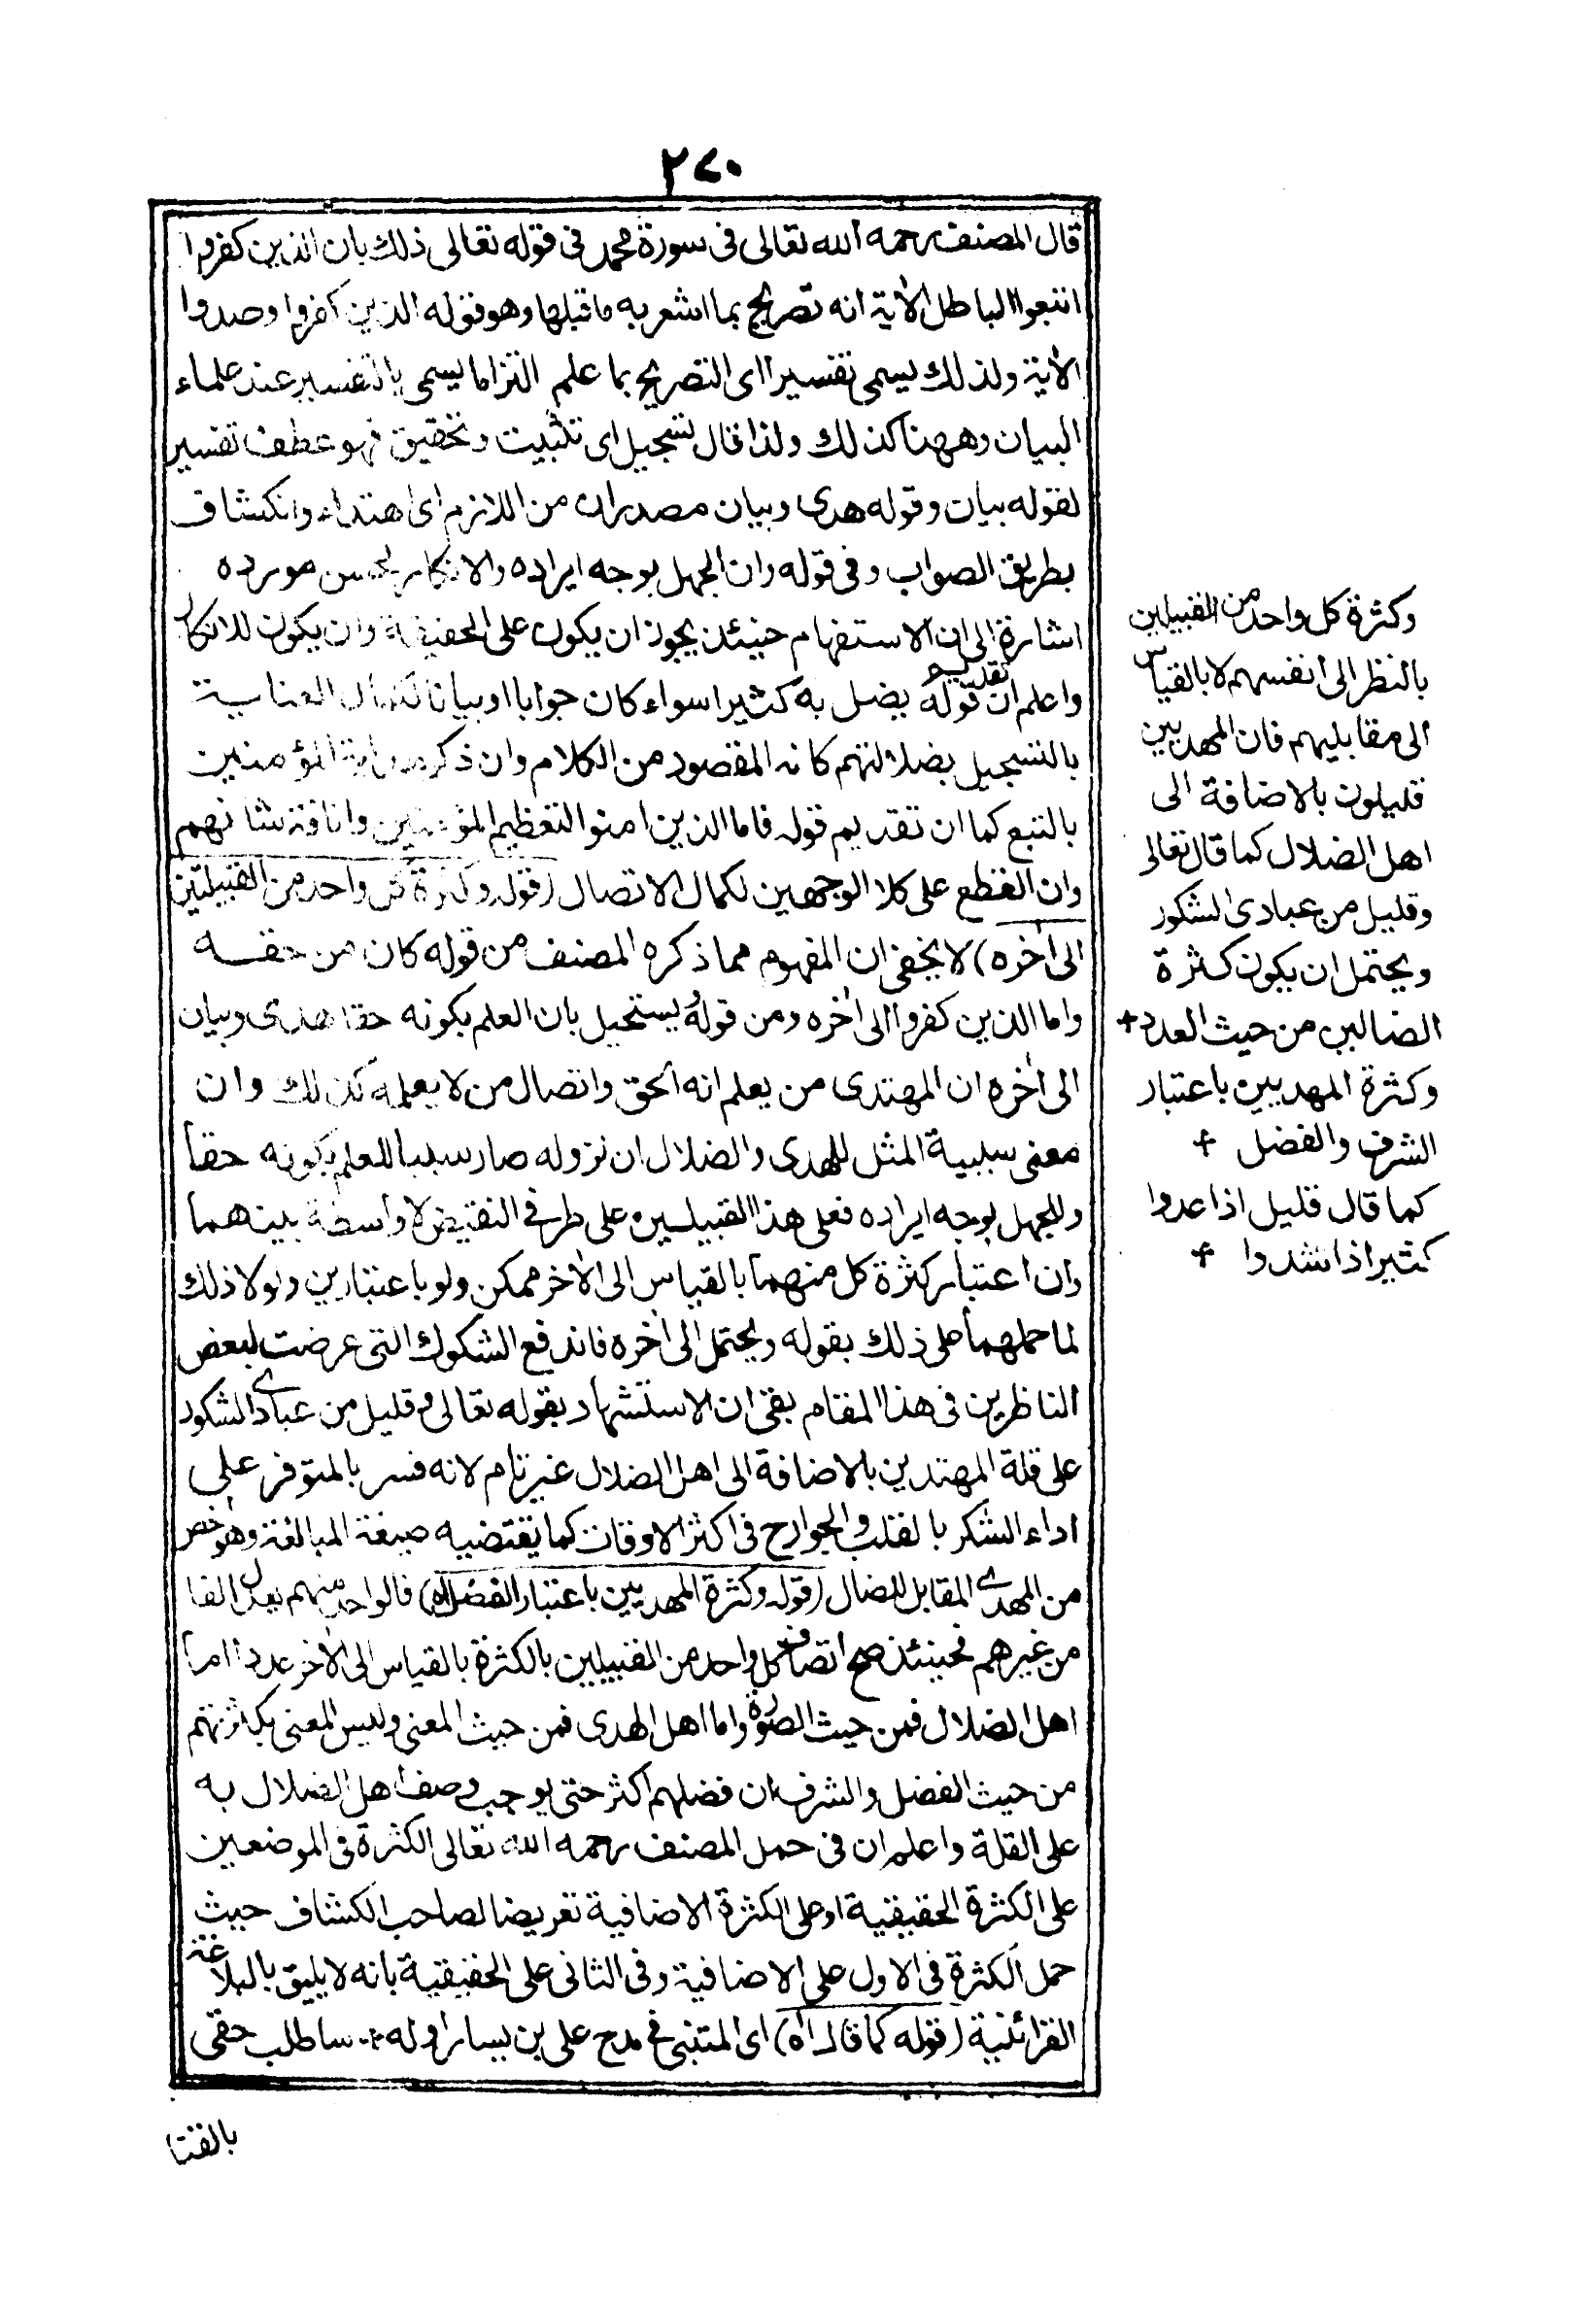 ٢٧٠
قال المصنف رحمه الله تعالى فى سورة محمد فى قوله تعالى ذلك بان الذين كفروا
اتبعوا الباطل الاٰية انه تصريح بما اشعر به ما قبلها وهو قوله الذين كفروا وصدوا
الاٰية ولذلك يسمى تفسيرا اى التصريح بما علم التزاما يسمى بالتفسير عند علماء
البيان وههنا كذلك ولذا قال تسجيل اى تثبيت وتحقيق فهو عطف تفسير
لقوله بيان وقوله هدى وبيان مصدران من اللازم اى اهتداء وانكشاف
بطريق الصواب وفى قوله وان الجهل بوجه ايراده والانكار لحسن مورده
اشارة الى ان الاستفهام حينئذ يجوز ان يكون على الحقيقة وان يكون للانكار
واعلم ان تقديم قوله يضل به كثيرا سواء كان جوابا او بيانا لكمال العناية
بالتسجيل بضلالتهم كانه المقصود من الكلام وان ذكر هداية المؤمنين
بالتبع كما ان تقديم قوله فاما الذين امنوا لتعظيم المؤمنين وانافة شانهم
وان القطع على كلا الوجهين لكمال الاتصال (قوله وكثرة كل واحد من القبيلتين
الى اٰخره) لا يخفى ان المفهوم مما ذكره المصنف من قوله كان من حقه
واما الذين كفروا الى اٰخره ومن قوله ويستحيل بان العلم بكونه حقا هدى وبيان
الى اٰخره ان المهتدى من يعلم انه الحق واتصال من لا يعلمه كذلك وان
معنى سببية المثل للهدى والضلال ان نزوله صار سببا للعلم بكونه حقا
وللجهل بوجه ايراده فعلى هذا القبيلين على طرفى النقيض لا واسطة بينهما
وان اعتبار كثرة كل منهما بالقياس الى الاٰخر ممكن ولو باعتبارين ولولا ذلك
لما حملهما على ذلك بقوله ويحتمل الى اٰخره فاندفع الشكوك التى عرضت لبعض
الناظرين فى هذا المقام بقى ان الاستشهاد بقوله تعالى وقليل من عبادى الشكور
على قلة المهتدين بالاضافة الى اهل الضلال غير تام لانه فسر بالمتوفر على
اداء الشكر بالقلب والجوارح فى اكثر الاوقات كما يقتضيه صيغة المبالغة وهو اخص
من المهدى المقابل للضال (قوله وكثرة المهديين باعتبار الفضل اه) فالواحد منهم يعدل الفا
من غيرهم فحينئذ صح اتصاف كل واحد من القبيلين بالكثرة بالقياس الى الاٰخر عددا اما
اهل الضلال فمن حيث الصورة واما اهل الهدى فمن حيث المعنى وليس المعنى بكثرتهم
من حيث الفضل والشرف ان فضلهم اكثر حتى يوجب وصف اهل الضلال به
على القلة واعلم ان فى حمل المصنف رحمه الله تعالى الكثرة فى الموضعين
على الكثرة الحقيقية او على الكثرة الاضافية تعريضا لصاحب الكشاف حيث
حمل الكثرة فى الاول على الاضافية وفى الثانى على الحقيقية بانه لا يليق بالبلاغة
القرائنية (قوله كما قال اه) اى المتنبى فى مدح على بن يسار اوله ساطلب حقى
بالقنا
وكثرة كل واحد من القبيلين
بالنظر الى انفسهم لا بالقياس
الى مقابليهم فان المهديين
قليلون بالاضافة الى
اهل الضلال كما قال تعالى
وقليل من عبادى الشكور
ويحتمل ان يكون كثرة
الضالين من حيث العدد
وكثرة المهديين باعتبار
الشرف والفضل
كما قال قليل اذا عدوا
كثير اذا شدوا